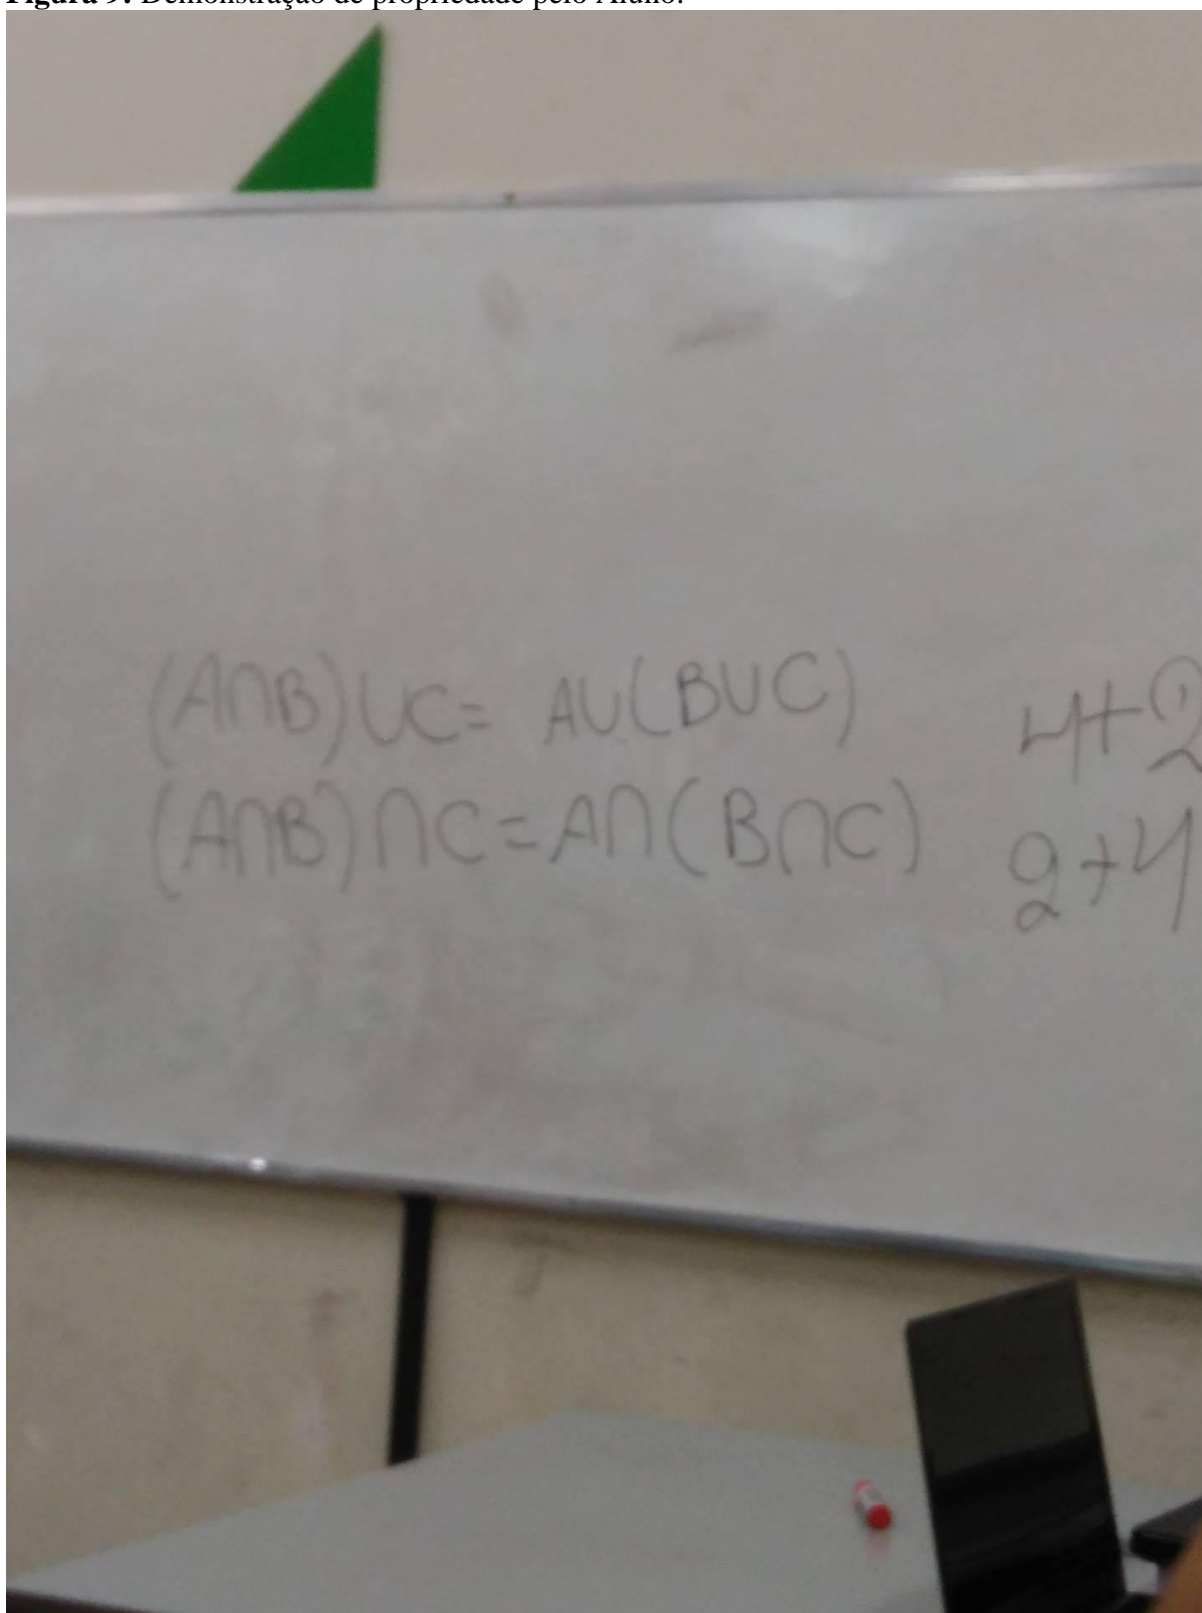 Figura 9: Demonstração de propriedade pelo Aluno.
(A∩B)∪C= A∪(B∪C) 4+2
(A∩B)∩C=A∩(B∩C) 2+4